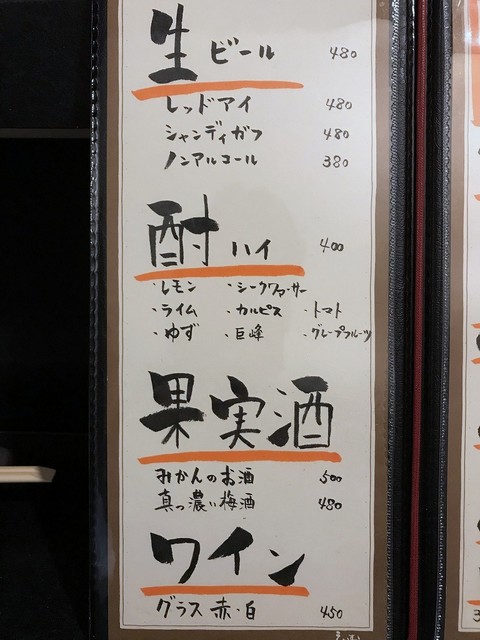 生ビール 480
レッドアイ 480
シャンディガフ 480
ノンアルコール 380
酎ハイ 400
・レモン ・シークワァーサー
・ライム ・カルピス ・トマト
・ゆず ・巨峰 ・グレープフルーツ
果実酒
みかんのお酒 500
真っ濃い梅酒 480
ワイン
グラス 赤・白 450